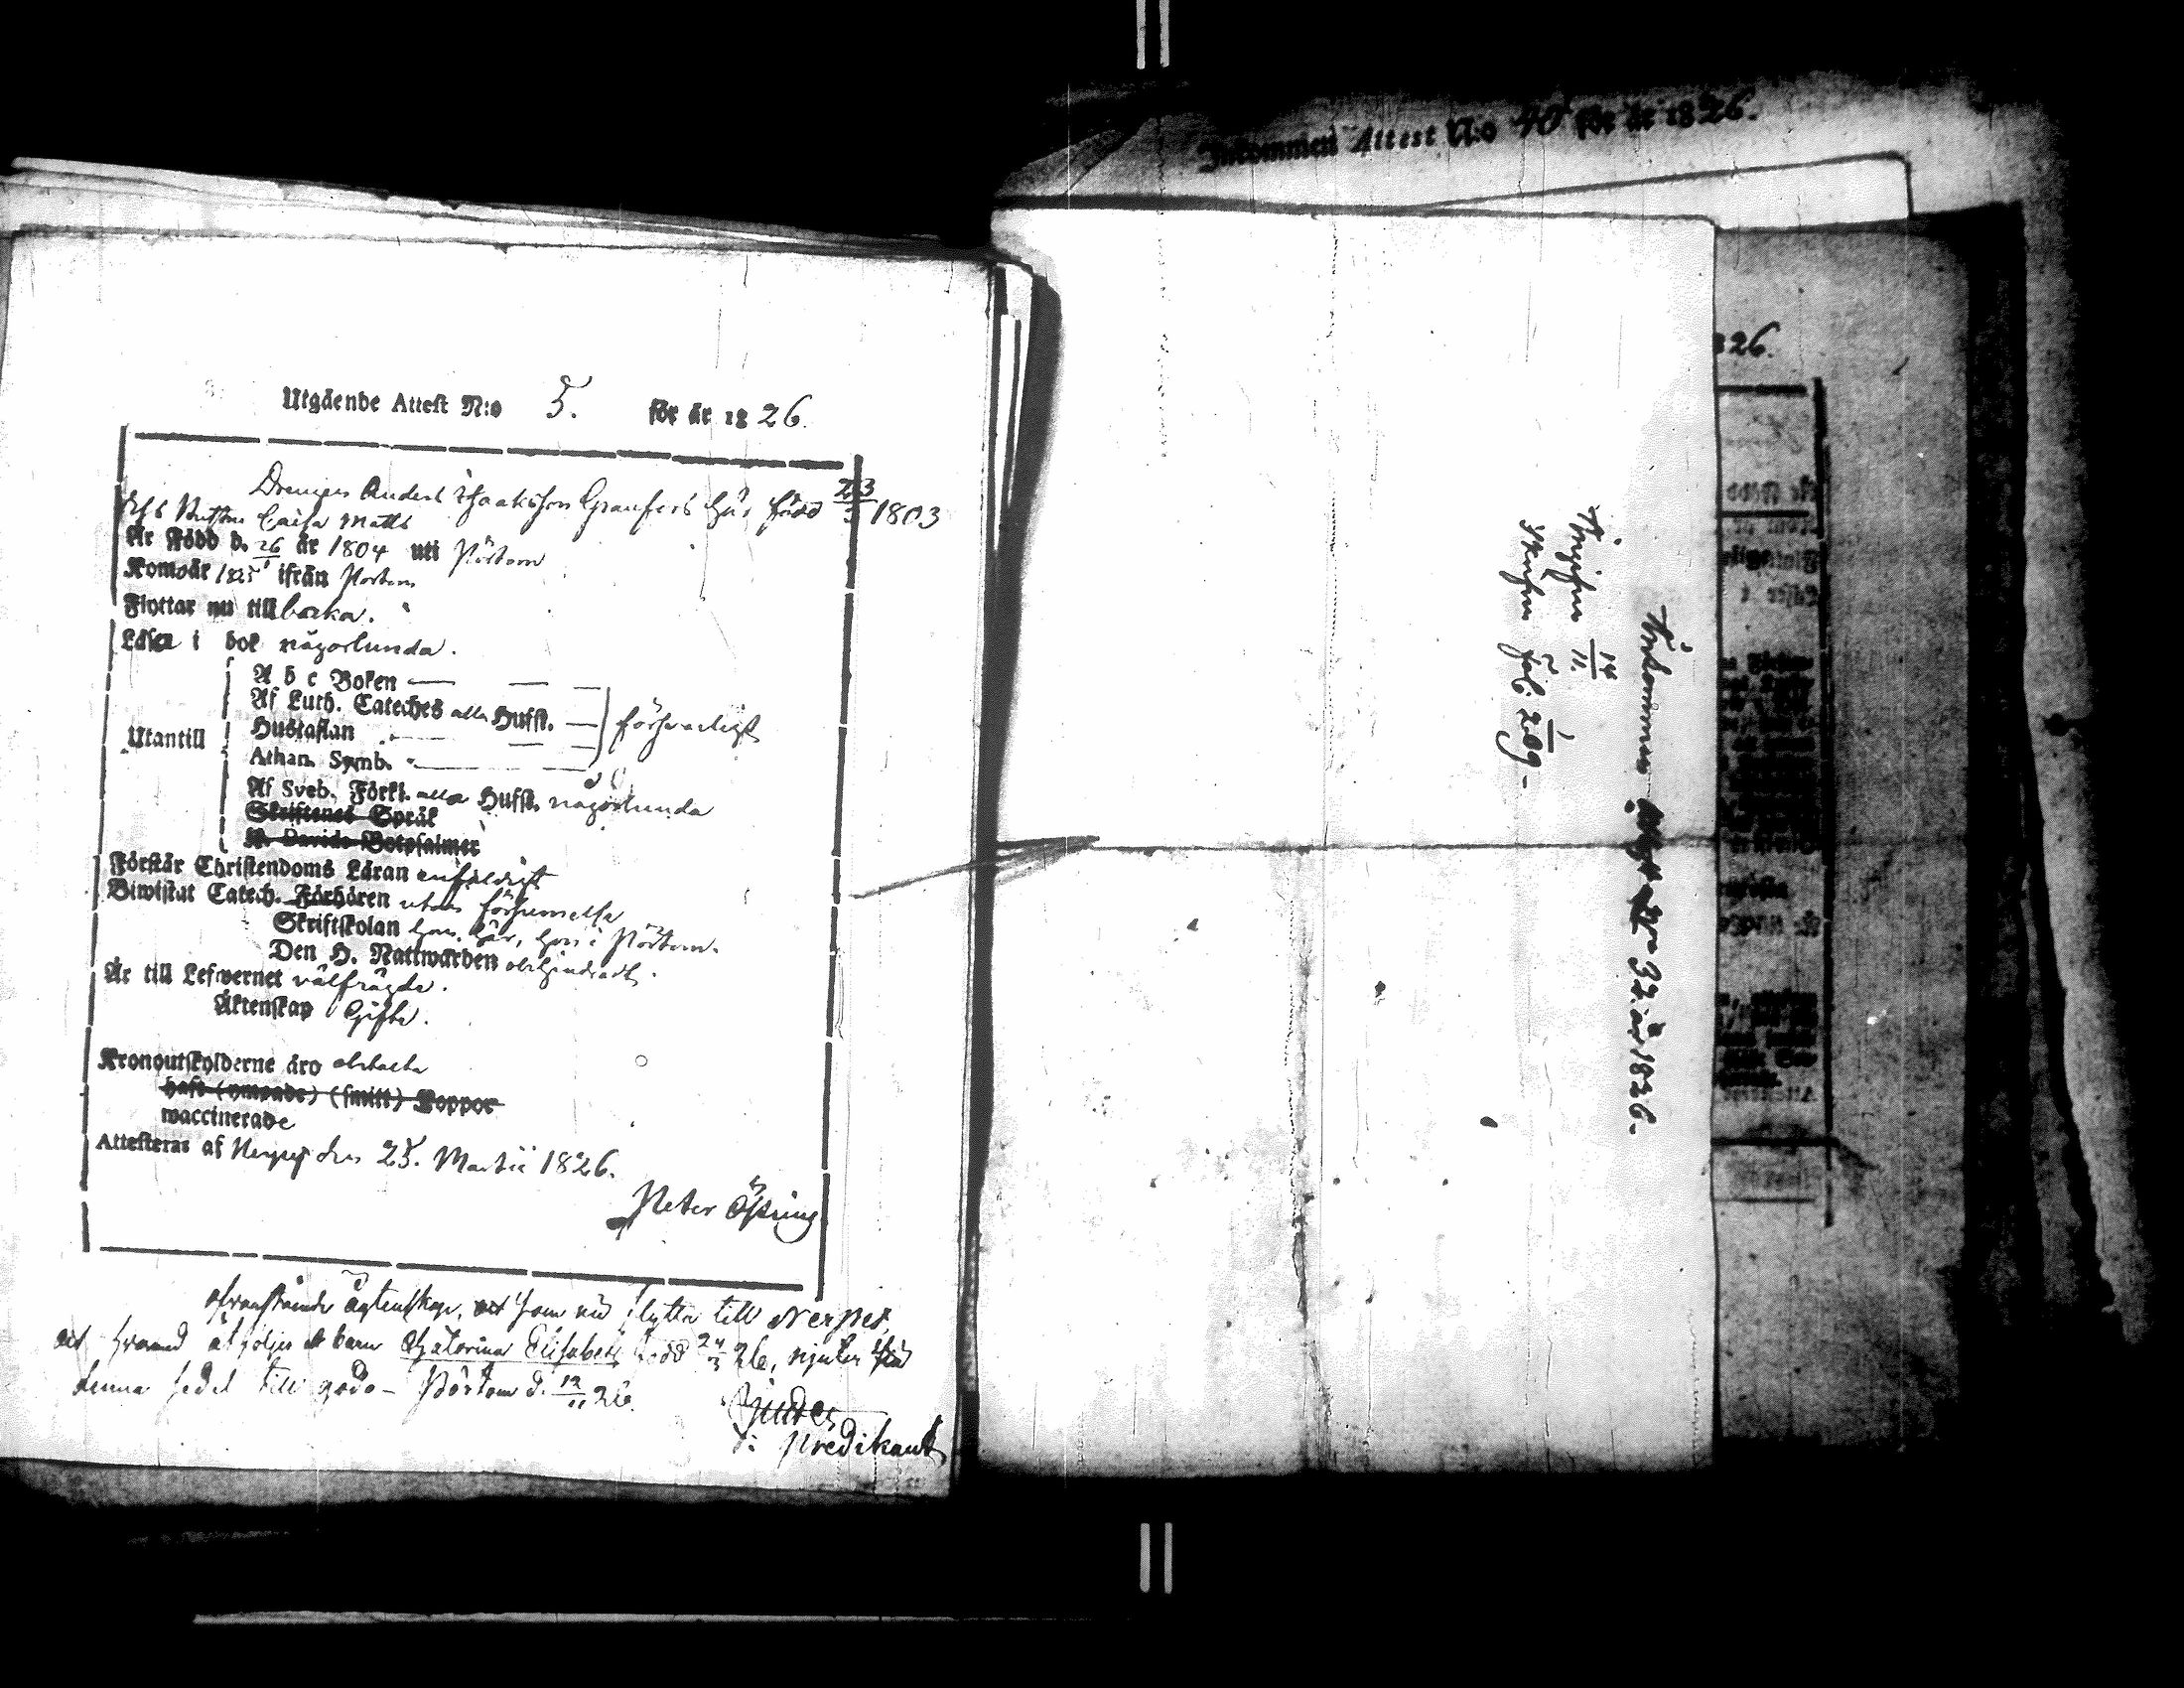 Utgående Attest N:o 5. för år 1826.
Drengen Anders Isaaksson Granfors här född 23/3 1803
och Hustru Caisa Matts
Är Född d. 26/1 år 1804 uti Pörtom
Komoår 1825 ifrån Pörtom
Flyttar nu till backa.
Läsa i bok någorlunda.
Utantill
A b c Boken
Af Luth. Cateches alla Hufst.
Hustaflan
Athan. Symb.
försvarligt
Af Sveb. Förkl. alla Hufst. någorlunda
Skriftenes Språk
K. Davids Botpsalmer
Förstår Christendoms Läran enfaldigt
Biwistat Catech. Förhören utan försummelse
Skriftskolan han här, hon i Pörtom.
Den H. Nattwarden obehindradt.
Är till Lefwernet välfrägde.
Äktenskap Gifte.
Kronoutskylderne äro obetalta
haft (ympade) (smitt) Koppor
waccinerade
Attesteras af Nerpes den 25. Martii 1826.
Peter Östring
ofvanstående ägtenskap, som nu flyttar till Nerpes,
det hvarmed åtföljer et barn Catarina Elisabet född 24/3 26, njuter
denna sedel till godo – Pörtom d. 12/11 26.
Prédikant
Inkommen Attest N:o 40 för år 1826.
26.
Inkommen N:o 32. år 1826.
14/11.
fol. 209